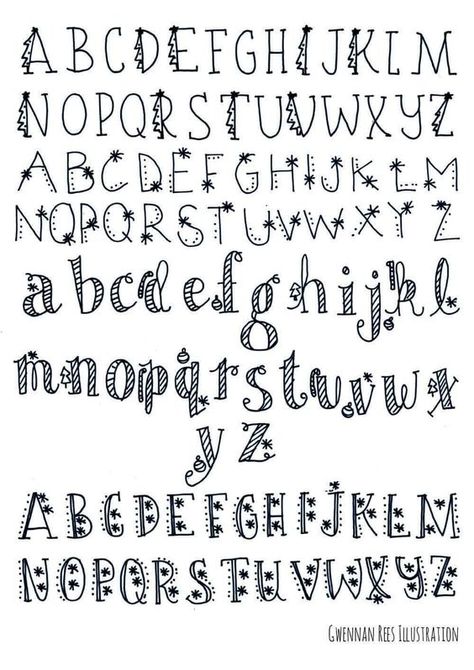 ABCDEFGHIJKLM
NOPQRSTUVWXYZ
ABCDEFGHIJKLM
NOPQRSTUVWXYZ
abcdefghijkl
mnopqrstuvwx
yz
ABCDEFGHIJKLM
NOPQRSTUVWXYZ
GWENNAN REES ILLUSTRATION